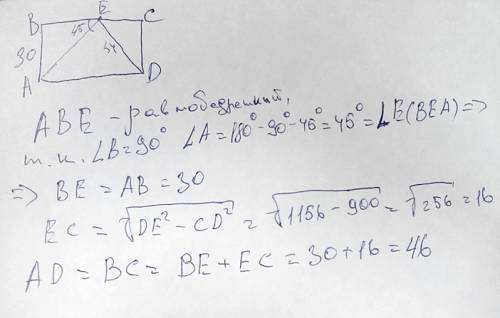 B E C
45
30 34
A D
ABE - равнобедренный,
т.к. ∠B=90° ∠A=180°-90°-45°=45°=∠E(BEA)=>
=> BE = AB = 30
EC = √(DE²-CD²) = √(1156-900) = √256 = 16
AD = BC = BE + EC = 30+16 = 46